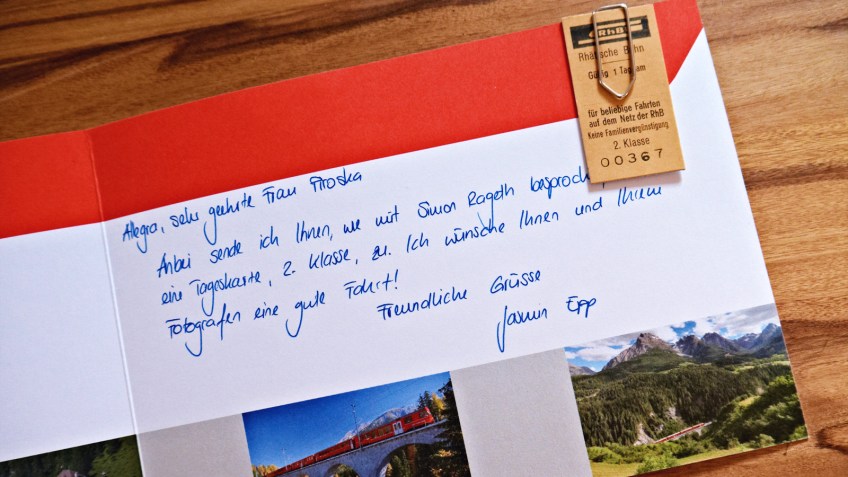 RhB
Rhätische Bahn
Gültig 1 Tag am
für beliebige Fahrten
auf dem Netz der RhB
Keine Familienvergünstigung
2. Klasse
00367
Allegra, sehr geehrte Frau Piroska
Anbei sende ich Ihnen, wie mit Simon Rageth besprochen,
eine Tageskarte, 2. Klasse, zu. Ich wünsche Ihnen und Ihrem
Fotografen eine gute Fahrt!
Freundliche Grüsse
Jasmin Epp